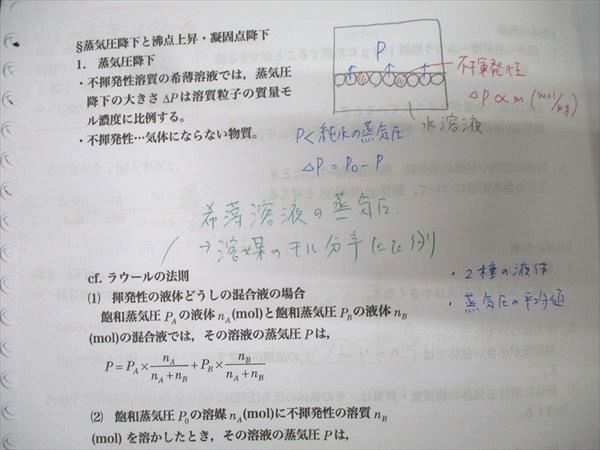 §蒸気圧降下と沸点上昇・凝固点降下
1. 蒸気圧降下
・不揮発性溶質の希薄溶液では，蒸気圧
降下の大きさ ΔPは溶質粒子の質量モ
ル濃度に比例する。
・不揮発性…気体にならない物質。
P
不揮発性
ΔP ∝ m (mol/kg)
水溶液
P< 純水の蒸気圧
ΔP = P₀ − P
希薄溶液の蒸気圧.
→溶媒のモル分率に比例
cf. ラウールの法則
(1) 揮発性の液体どうしの混合液の場合
飽和蒸気圧 P_Aの液体 n_A(mol)と飽和蒸気圧 P_Bの液体 n_B
(mol)の混合液では，その溶液の蒸気圧 Pは，
P = P_A × n_A/(n_A + n_B) + P_B × n_B/(n_A + n_B)
・2種の液体
・蒸気圧の平均値
(2) 飽和蒸気圧 P₀の溶媒 n_A(mol)に不揮発性の溶質 n_B
(mol) を溶かしたとき，その溶液の蒸気圧 Pは，